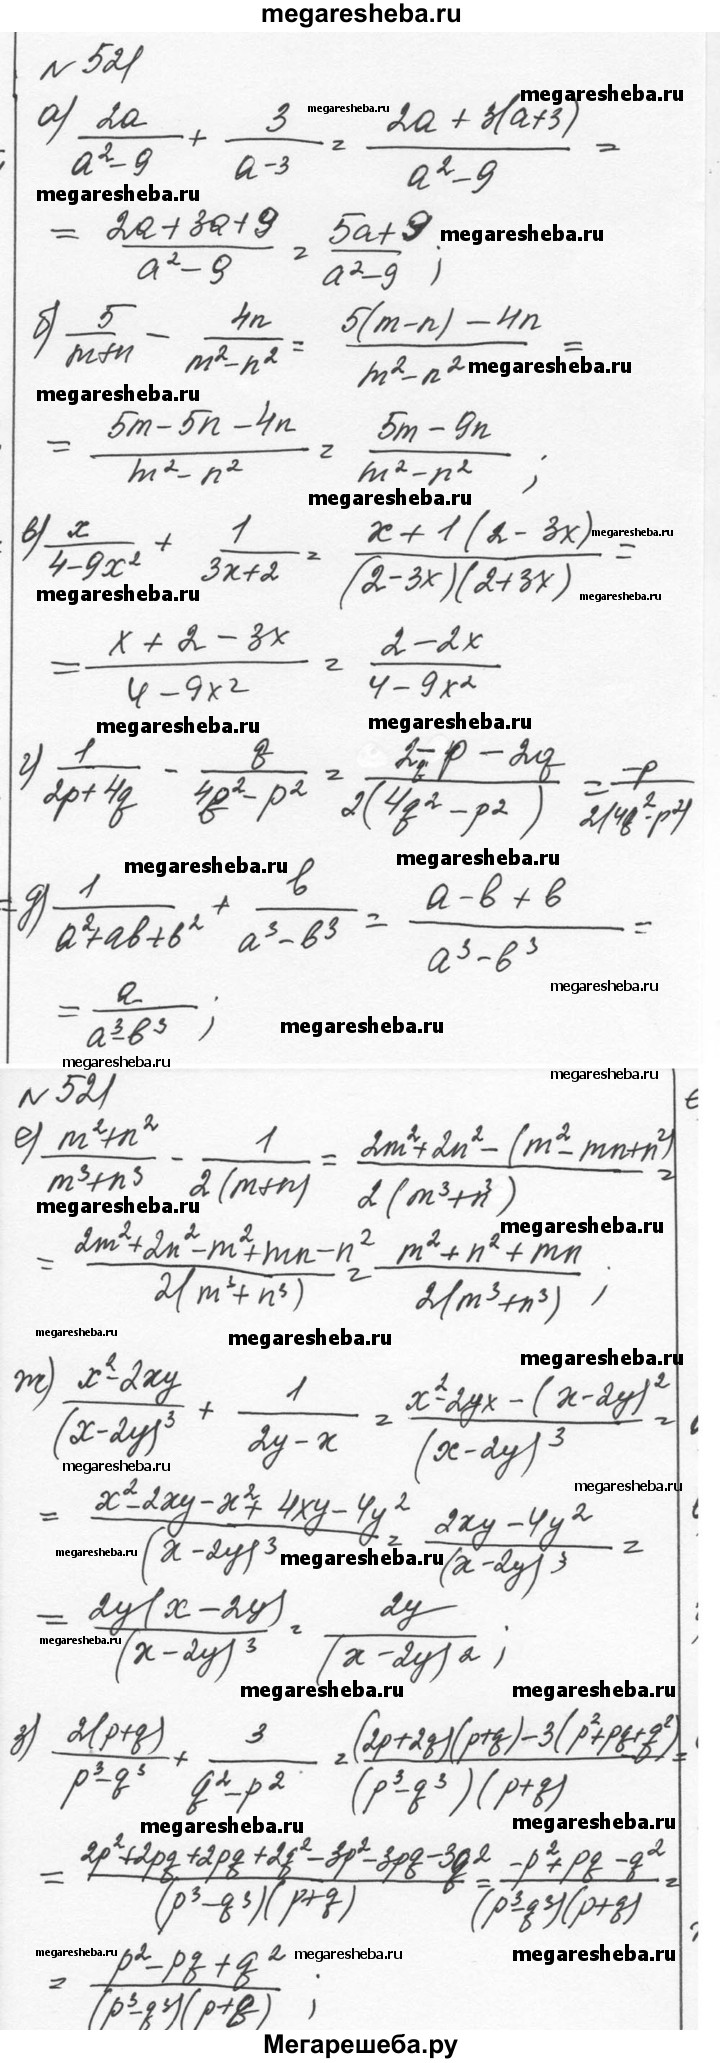 megaresheba.ru
N 521
megaresheba.ru
megaresheba.ru
а) 2a/(a²-9) + 3/(a-3) = (2a + 3(a+3))/(a²-9) =
megaresheba.ru
= (2a+3a+9)/(a²-9) = (5a+9)/(a²-9) ;
megaresheba.ru
б) 5/(m+n) - 4n/(m²-n²) = (5(m-n) - 4n)/(m²-n²) =
megaresheba.ru
megaresheba.ru
= (5m-5n-4n)/(m²-n²) = (5m-9n)/(m²-n²) ;
megaresheba.ru
в) x/(4-9x²) + 1/(3x+2) = (x+1(2-3x))/((2-3x)(2+3x)) =
megaresheba.ru
megaresheba.ru
megaresheba.ru
= (x+2-3x)/(4-9x²) = (2-2x)/(4-9x²)
megaresheba.ru
megaresheba.ru
г) 1/(2p+4q) - q/(4q²-p²) = (2q-p-2q)/(2(4q²-p²)) = -p/(2(4q²-p²))
megaresheba.ru
megaresheba.ru
д) 1/(a²+ab+b²) + b/(a³-b³) = (a-b+b)/(a³-b³) =
megaresheba.ru
= a/(a³-b³) ;
megaresheba.ru
megaresheba.ru
megaresheba.ru
N 521
е) (m²+n²)/(m³+n³) - 1/(2(m+n)) = (2m²+2n²-(m²-mn+n²))/(2(m³+n³)) =
megaresheba.ru
megaresheba.ru
= (2m²+2n²-m²+mn-n²)/(2(m³+n³)) = (m²+n²+mn)/(2(m³+n³)) ;
megaresheba.ru
megaresheba.ru
megaresheba.ru
ж) (x²-2xy)/(x-2y)³ + 1/(2y-x) = (x²-2yx-(x-2y)²)/(x-2y)³ =
megaresheba.ru
megaresheba.ru
= (x²-2xy-x²+4xy-4y²)/(x-2y)³ = (2xy-4y²)/(x-2y)³ =
megaresheba.ru
megaresheba.ru
= 2y(x-2y)/(x-2y)³ = 2y/(x-2y)² ;
megaresheba.ru
megaresheba.ru
megaresheba.ru
з) 2(p+q)/(p³-q³) + 3/(q²-p²) = ((2p+2q)(p+q)-3(p²+pq+q²))/((p³-q³)(p+q)) =
megaresheba.ru
megaresheba.ru
= (2p²+2pq+2pq+2q²-3p²-3pq-3q²)/((p³-q³)(p+q)) = (-p²+pq-q²)/((p³-q³)(p+q)) =
megaresheba.ru
megaresheba.ru
megaresheba.ru
= (p²-pq+q²)/((p³-q³)(p+q)) ;
Мегарешеба.ру